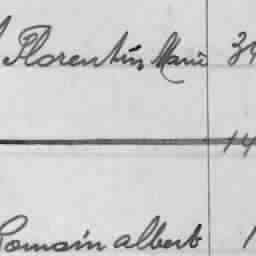 Florentin Marie 34
14
Romain albert 1